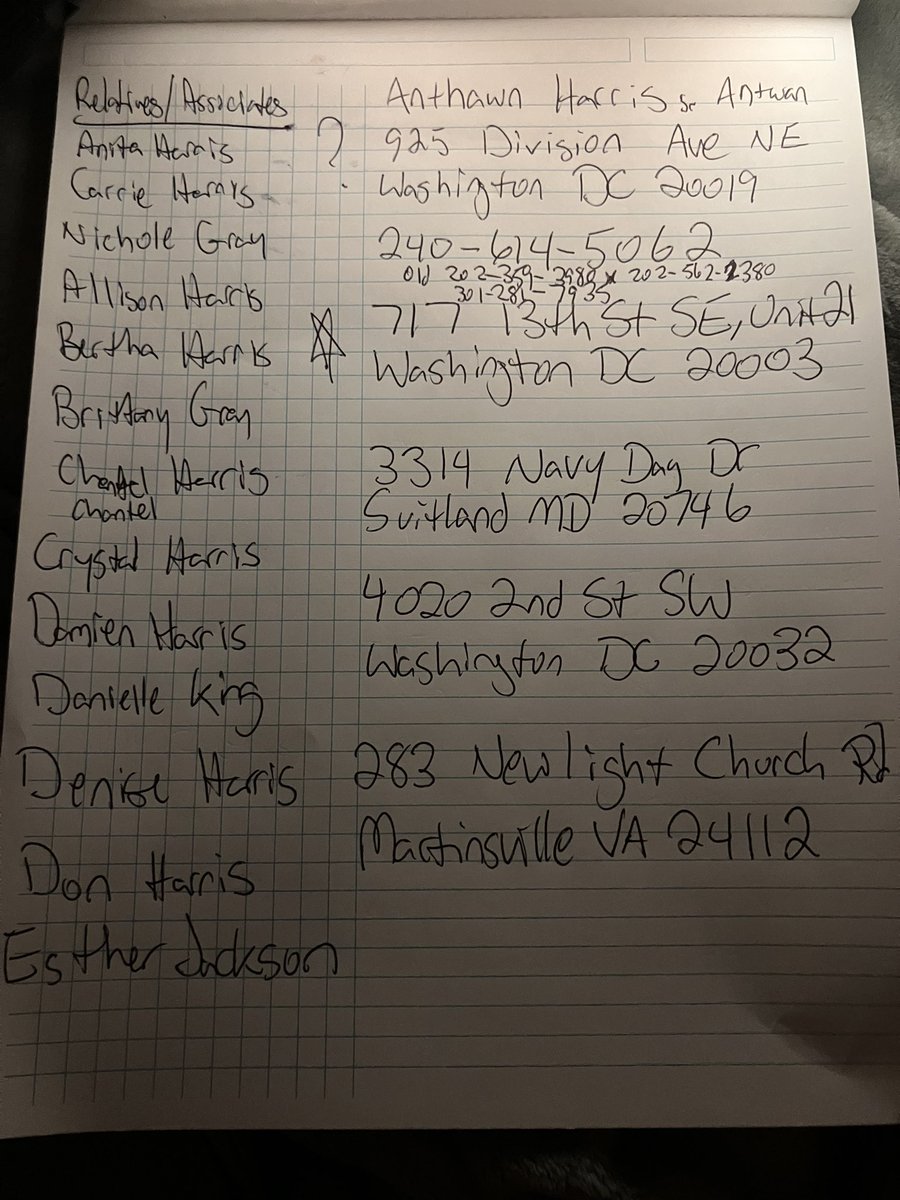 Relatives/Associates
Anita Harris
Carrie Harris
Nichole Gray
Allison Harris
Bertha Harris
Brittany Gray
Chantel Harris
Chantel
Crystal Harris
Damien Harris
Danielle King
Denise Harris
Don Harris
Esther Jackson
Anthawn Harris Sr Antwan
? 925 Division Ave NE
Washington DC 20019
240-614-5062
Old 202-359- 202-562-2380
301-281-7935
717 13th St SE, Unit 21
Washington DC 20003
3314 Navy Day Dr
Suitland MD 20746
4020 2nd St SW
Washington DC 20032
283 New light Church Rd
Martinsville VA 24112